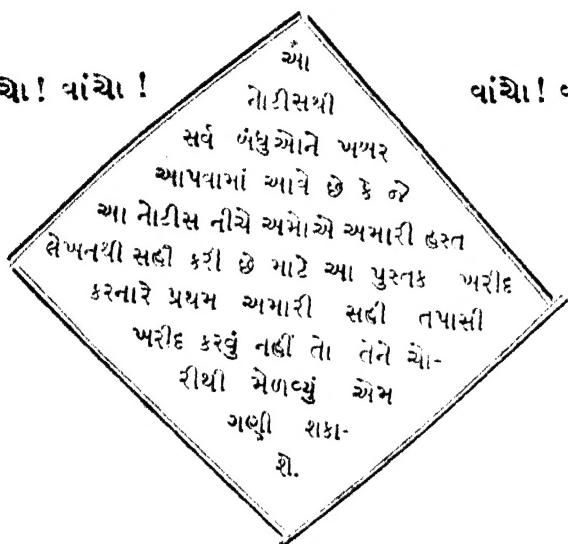 આ
નોટીસથી
ચો! વાંચો ! વાંચો!
સર્વ બંધુઓને ખબર
આપવામાં આવે છે કે જે
આ નોટીસ નીચે અમોએ અમારી હસ્ત
લેખનથી સહી કરી છે માટે આ પુસ્તક ખરીદ
કરનારે પ્રથમ અમારી સહી તપાસી
ખરીદ કરવું નહીં તો તેને ચો-
રીથી મેળવ્યું એમ
ગણી શકા-
શે.